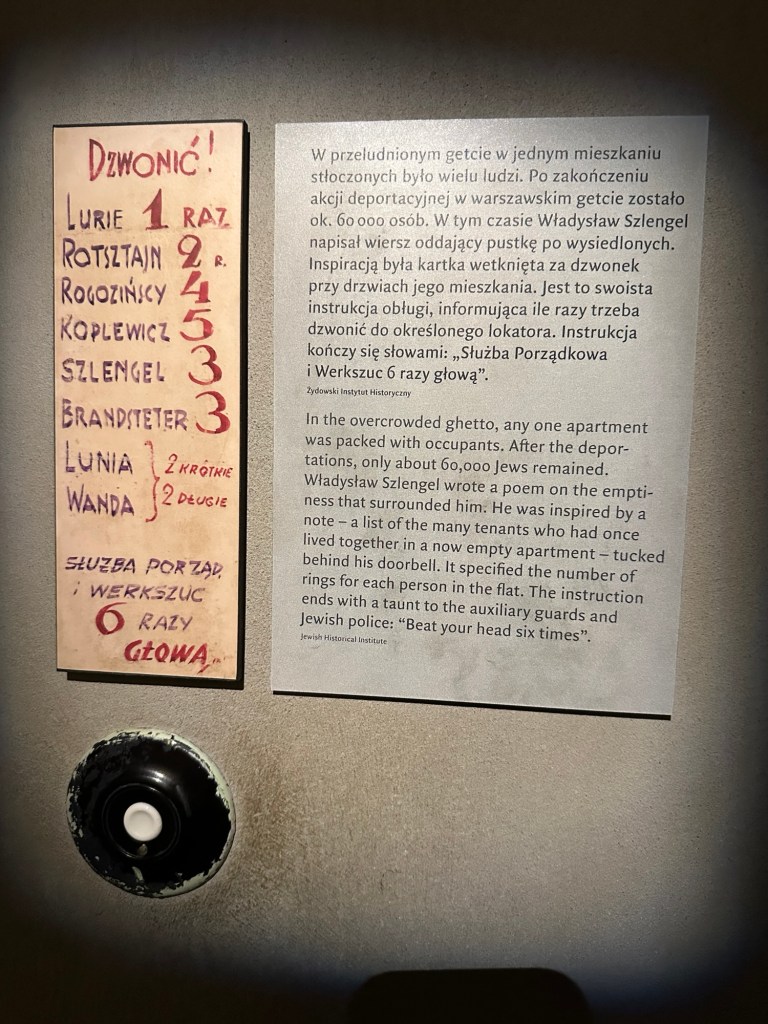 DZWONIĆ!
LURIE 1 RAZ
ROTSZTAJN 2 R.
ROGOZIŃSCY 4
KOPLEWICZ 5
SZLENGEL 3
BRANDSTETER 3
LUNIA 2 KRÓTKIE
WANDA 2 DŁUGIE
SŁUŻBA PORZĄD.
i WERKSZUC
6 RAZY
GŁOWĄ„
W przeludnionym getcie w jednym mieszkaniu
stłoczonych było wielu ludzi. Po zakończeniu
akcji deportacyjnej w warszawskim getcie zostało
ok. 60 000 osób. W tym czasie Władysław Szlengel
napisał wiersz oddający pustkę po wysiedlonych.
Inspiracją była kartka wetknięta za dzwonek
przy drzwiach jego mieszkania. Jest to swoista
instrukcja obługi, informująca ile razy trzeba
dzwonić do określonego lokatora. Instrukcja
kończy się słowami: „Służba Porządkowa
i Werkszuc 6 razy głową”.
Żydowski Instytut Historyczny
In the overcrowded ghetto, any one apartment
was packed with occupants. After the depor-
tations, only about 60,000 Jews remained.
Władysław Szlengel wrote a poem on the empti-
ness that surrounded him. He was inspired by a
note – a list of the many tenants who had once
lived together in a now empty apartment – tucked
behind his doorbell. It specified the number of
rings for each person in the flat. The instruction
ends with a taunt to the auxiliary guards and
Jewish police: “Beat your head six times”.
Jewish Historical Institute